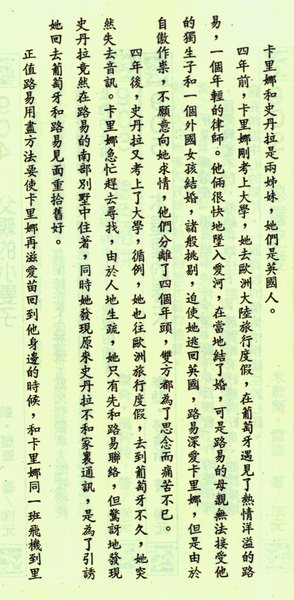 卡里娜和史丹拉是兩姊妹，她們是英國人。
四年前，卡里娜剛考上大學，她去歐洲大陸旅行度假，在葡萄牙遇見了熱情洋溢的路
易，一個年輕的律師。他倆很快地墜入愛河，在當地結了婚，可是路易的母親無法接受他
的獨生子和一個外國女孩結婚，諸般挑剔，迫使她逃回英國，路易深愛卡里娜，但是由於
自傲作祟，不願意向她求情，他們分離了四個年頭，雙方都為了思念而痛苦不已。
四年後，史丹拉又考上了大學，循例，她也往歐洲旅行度假，去到葡萄牙不久，她突
然失去音訊。卡里娜急忙趕去尋找，由於人地生疏，她只有先和路易聯絡，但驚訝地發現
史丹拉竟然在路易的南部別墅中住著，同時她發現原來史丹拉不和家裏通訊，是為了引誘
她回去葡萄牙和路易見面重拾舊好。
正值路易用盡方法要使卡里娜再滋愛苗回到他身邊的時候，和卡里娜同一班飛機到里